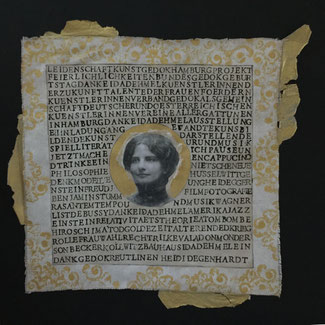 LEIDENSCHAFTKUNSTGEDOKHAMBURGPROJEKT
FEIERLICHLICHKEITENBUNDESGEDOKGEBUR
TSTAGDANKEIDADEHMELKUENSTLERINNEND
ERZUKUNFTTALENTEDERFRAUENFOERDERK
KUENSTLERINNENVERBANDGEDOKALSGEMEIN
SCHAFTDEUTSCHERUNDOESTERREICHISCHEN
KUENSTLERINNENVEREINALLERGATTUNGEN
INHAMBURGDANKEIDADEHMELAUSSTELLUNG
BEINLADUNGANG BANDTEKUNSTBI
LDENDEKUNST DARSTELLENDE
SPIELLITERAT URUNDMUSIK
JETZTMACHE ICHPAUSEUN
DTRINKEEIN ENCAPPUCINO
PHILOSOPHIE NIETSCHENEUE
EINSTEINFREUD FILMFOTOGRAFIE
BENJAMINSTUMM
RASANTEMTEMPOU NDMUSIKWAGNER
LISTDEBUSSYDANKEIDADEHMELAMERIKAJAZZ
EINSTEINRELATIVITAETSTHEORIEATOMBOMBE
HIROSCHIMATODGOLDZEITALTERENDEKRIEG
ROLLEFRAUWAHLRECHTRILKEVALADONMODER
SONBECKERKOLLWITZBAUHAUSIDADEHMELEIN
DANKGEDOKREUTLINGEN HEIDI DEGENHARDT